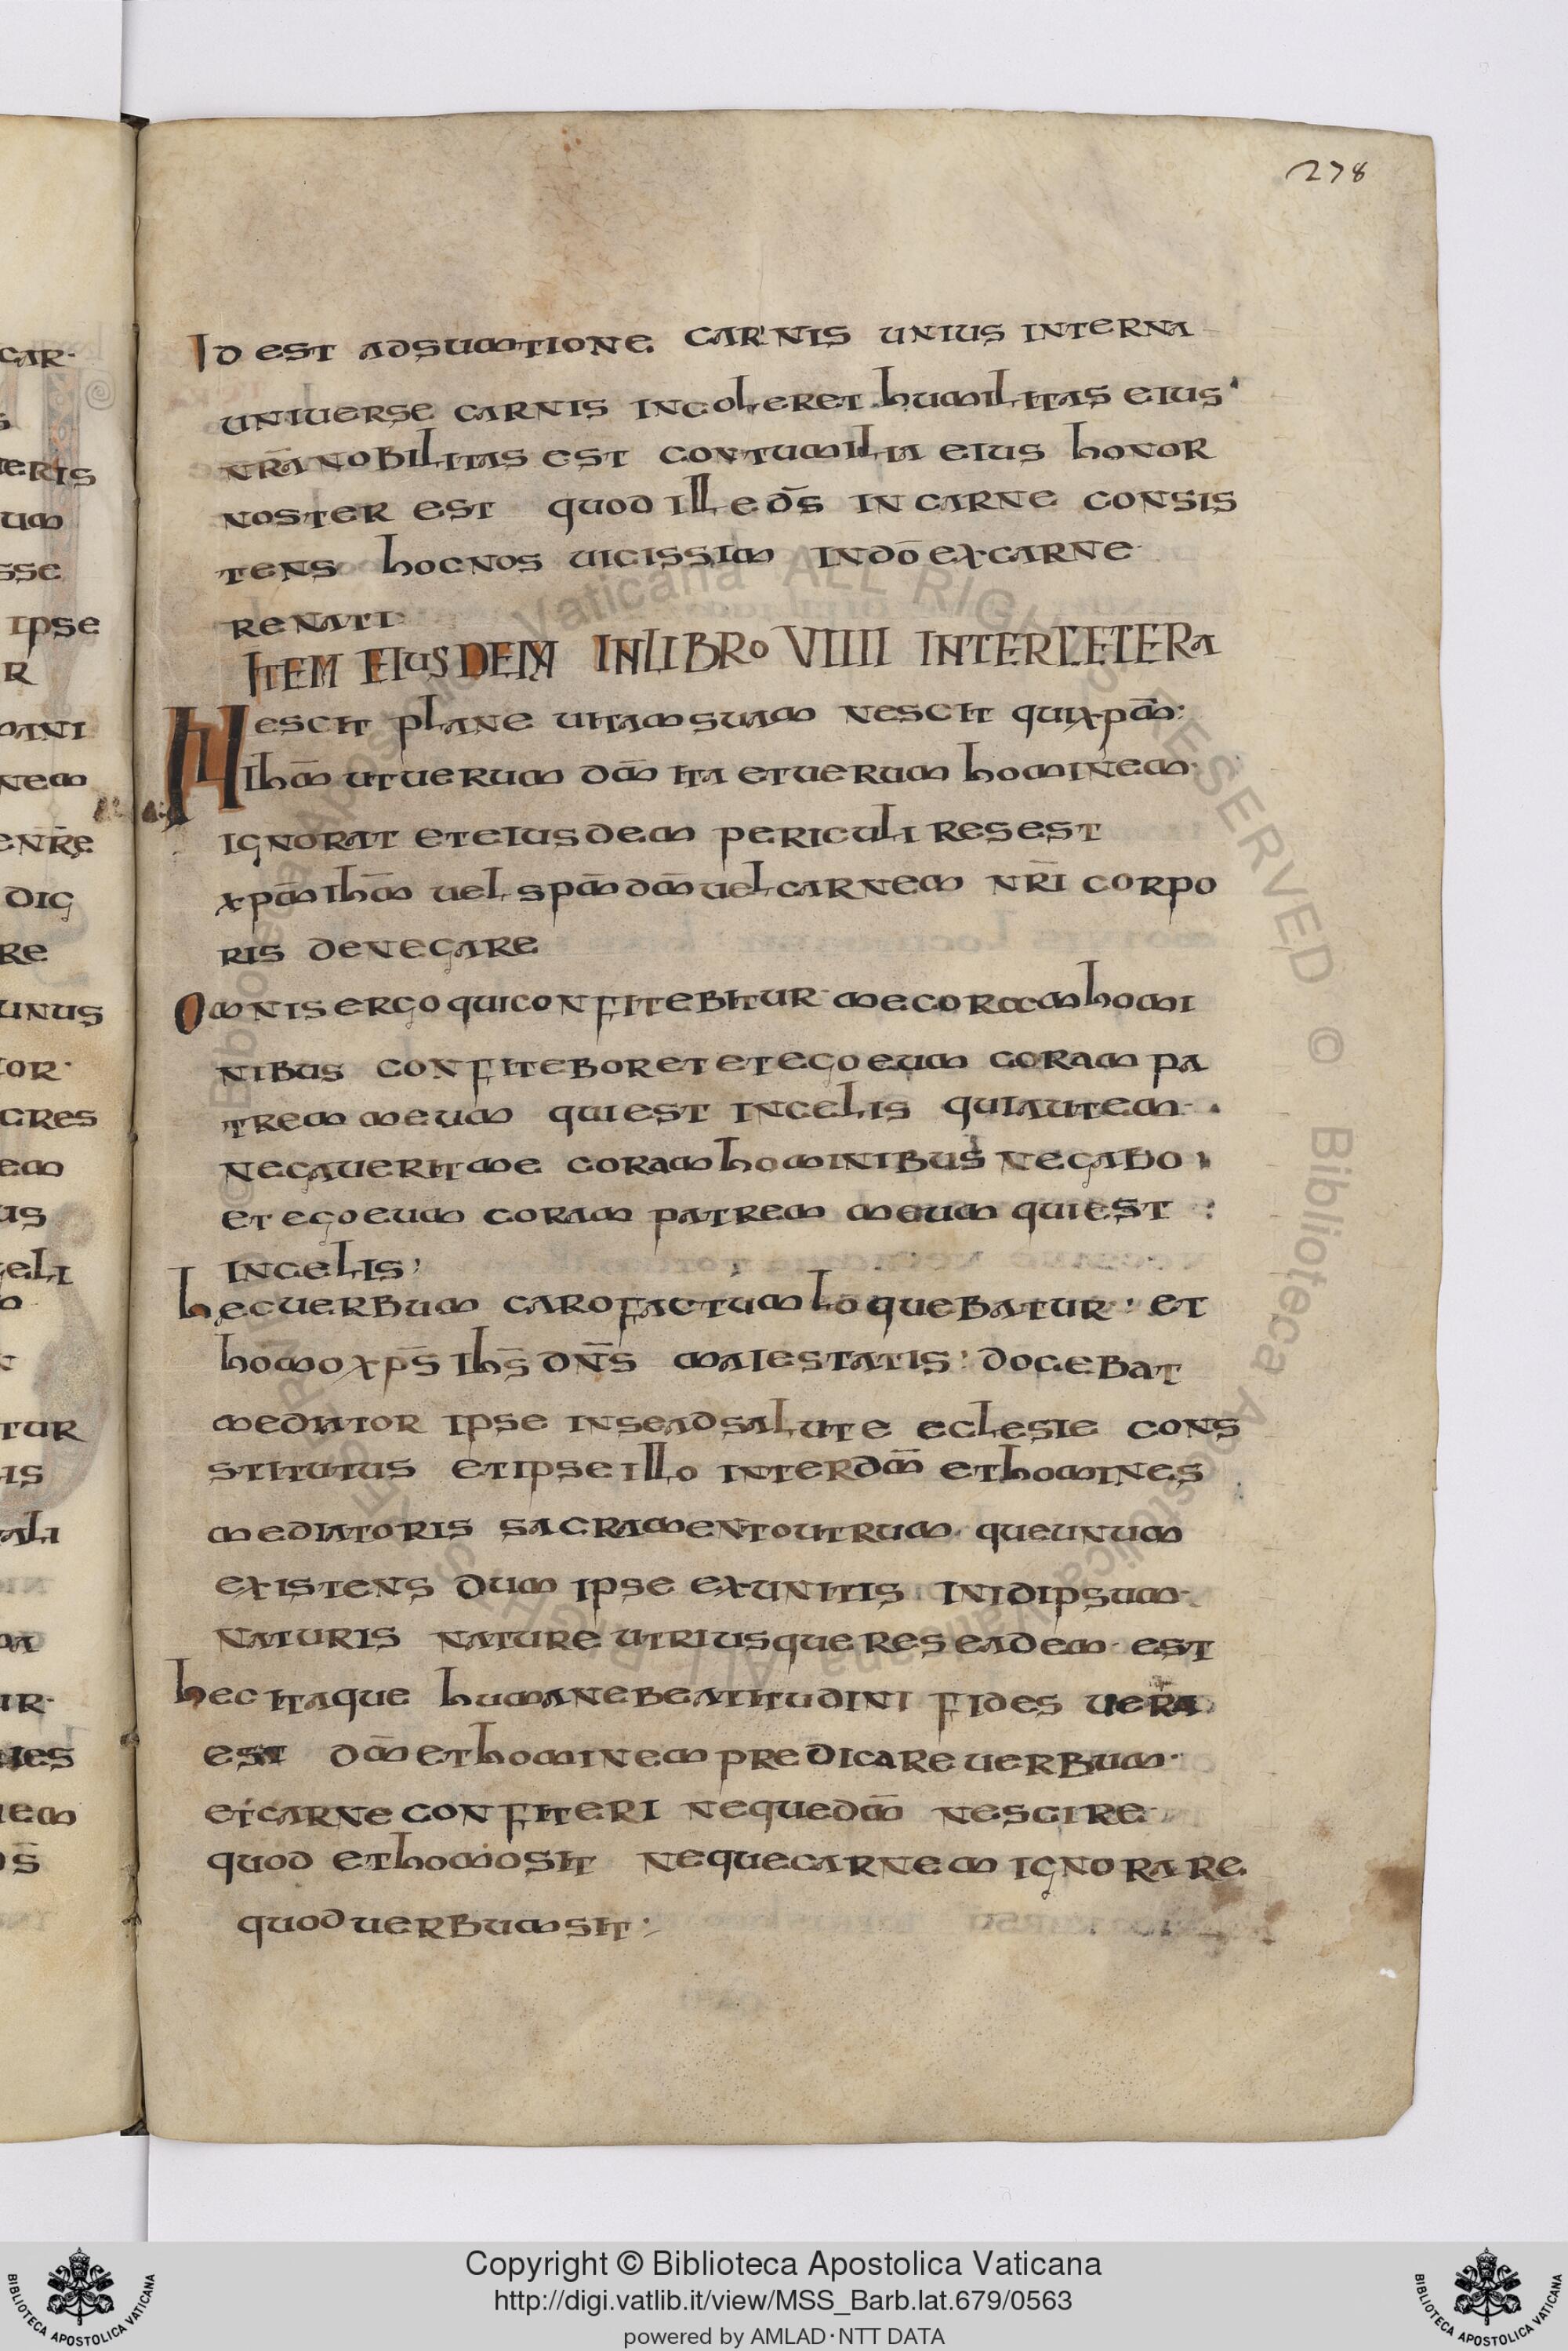 278
Id est adsumtione carnis unius interna
universe carnis incoleret humilitas eius
nr̄a nobilitas est contumilia eius honor
noster est quod ille ds̄ in carne consis
tens hoc nos vicissim in dō ex carne
renati
ITEM EIUSDEM IN LIBRO VIIII INTER CETERA
Nescit plane vitam suam nescit qui xpm̄
ihm̄ ut verum dm̄ ita et verum hominem
ignorat et eiusdem periculi res est
xpm̄ ihm̄ vel spm̄ dm̄ vel carnem nr̄i corpo
ris denegare
Omnis ergo qui confitebitur me coram homi
nibus confitebor et et ego eum coram pa
trem meum qui est in celis qui autem
negaverit me coram hominibus negabo
et ego eum coram patrem meum qui est
in celis
hec verbum caro factum loquebatur et
homo xps̄ ihs̄ dn̄s maiestatis docebat
mediator ipse in se ad salute eclesie cons
stitutus et ipse illo inter dm̄ et homines
mediatoris sacramento utrumque unum
existens dum ipse ex unitis in idipsum
naturis nature utriusque res eadem est
hec itaque humane beatitudini fides vera
est dm̄ et hominem predicare verbum
et carne confiteri neque dm̄ nescire
quod et homo sit neque carnem ignorare
quod verbum sit
car·
eris
um
sse
ipse
r
nem
enr̄e
dig
re
unus
tor·
gres
em
us
geli
tur
lis
ali
ir·
nes
uem
ds̄
Copyright © Biblioteca Apostolica Vaticana
http://digi.vatlib.it/view/MSS_Barb.lat.679/0563
powered by AMLAD·NTT DATA
BIBLIOTECA APOSTOLICA VATICANA
BIBLIOTECA APOSTOLICA VATICANA